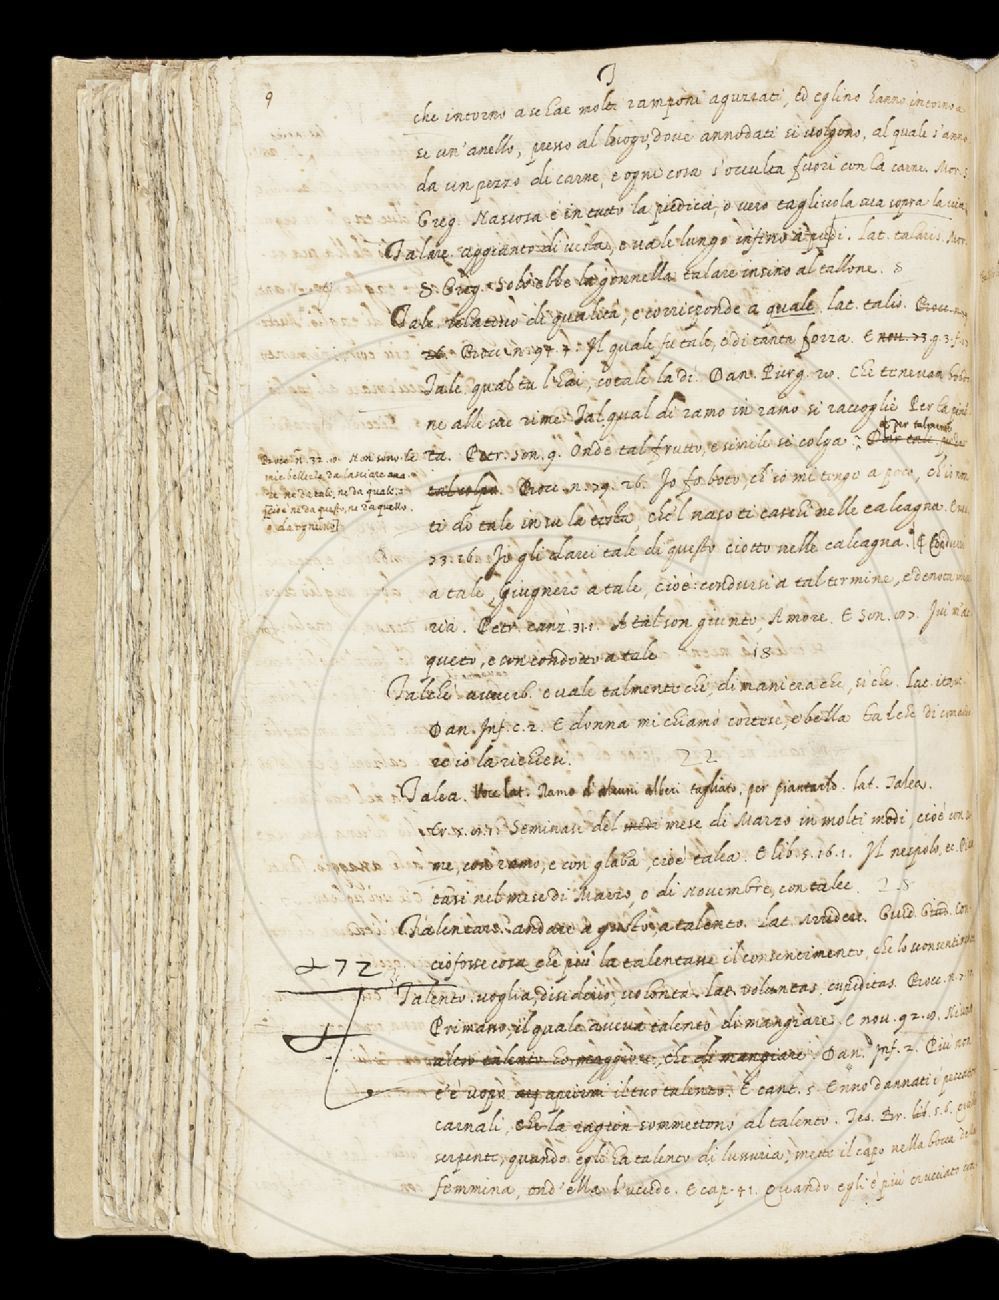 9
T
che intorno a se hae molti ramponi aguzzati, ed eglino hanno intorno a
se un'anello, presso al luogo, dove annodati si volgono, al quale s'anno
da un pezzo di carne, e ogni cosa s'occulta fuori con la carne. Mor. S.
Greg. Nascosa è in tutto la piedica, o vero tagliuola sua sopra la via
Talare. aggiunto di vesta, e vale lungo infino a' piedi. lat. talaris. Mor.
S. Greg. Sobrebbe la gonnella talare insino al tallone. 8
Tale. relativo di qualità, e corrisponde a quale. lat. talis. Bocc. nov.
26. Bocc. n. 94. 7. Il quale fu tale, e di tanta forza. E nov. 73. 9. 3.
Tale, qual tu l'hai, cotale la dì. Dan. Purg. 20. Che tenevan
ne alle sue rime. Tal qual di ramo in ramo si raccoglie Per la
ta. Petr. son. 9. Onde tal frutto, e simile si colga. per talmente
tal colpo. Bocc. n. 79. 26. Io fo boto, ch'io mi tengo a poco, ch'io non
ti dò tale in su la testa, che'l naso ti caschi nelle calcagna. E
73. 16. Io gli darei tale di questo ciotto nelle calcagna.
a tale, giugnere a tale, cioè: condursi a tal termine, e denota
ria. Petr. canz. 31. 1. A tal son giunto, Amore. E Son.
queto, e con condotto a tale 18
Bocc. n. 32. Non sono le
mie bellezze da lasciare ama-
re nè da tale, nè da quale.
cioè nè da questo, nè da quello.
o da ognuno]
Talchè avverb. e vale talmente che, di maniera che, sì che. lat. ita,
Dan. Inf. c. 2. E donna mi chiamò cortese, e bella talchè di coman-
re io la richiesi. 22
Talea. Voce lat. Ramo d'alcuni alberi tagliato, per piantarlo. lat. Talea.
Seminasi del medi mese di Marzo in molti modi, cioè con
me, con ramo, e con glava, cioè talea. E lib. 5. 16. 1. Il nespolo, ec.
tasi nel mese di Marzo, o di Novembre, con talee. 28
Talentare. andare a gusto, a talento. lat. Arridere. Guid. Giud. Con
ciò fosse cosa che più la talentasse il consentimento, che lo sconsentimento
272
Talento. voglia, disiderio, volontà. lat. voluntas. cupiditas. Bocc. n.
Primano, il quale aveva talento di mangiare. E nov. 92.
altro talento ho maggiore, che di mangiare. Dan. Inf. 2. Più non
t'è uopo aprirmi il tuo talento. E cant. 5. Enno dannati i peccator
carnali, che la ragion sommettono al talento. Tes. Br. lib. 5. 6.
serpente, quando egli ha talento di lussuria, mette il capo nella bocca della
femmina, ond'ella l'uccide. E cap. 41. Quando egli è più crucciato